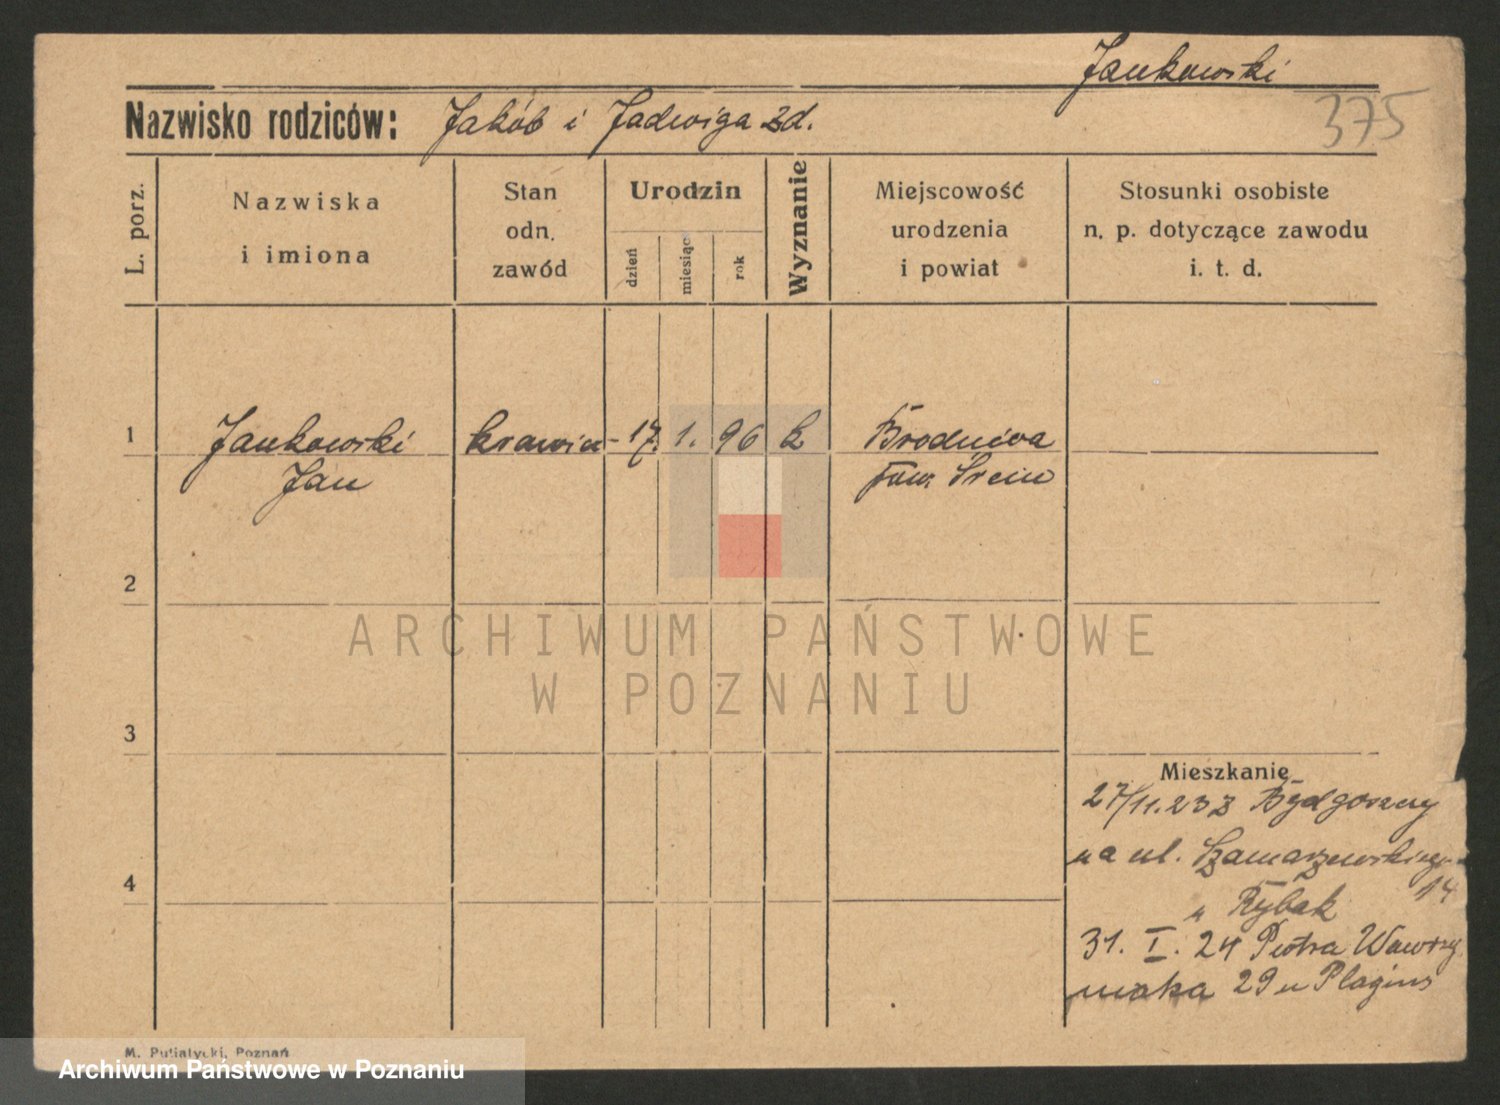 Jankowski
375
Nazwisko rodziców: Jakób i Jadwiga zd.
L. porz.
Nazwiska
i imiona
Stan
odn.
zawód
Urodzin
dzień
miesiąc
rok
Wyznanie
Miejscowość
urodzenia
i powiat
Stosunki osobiste
n. p. dotyczące zawodu
i. t. d.
1 Jankowski krawiec 17. 1. 96 k Brodnica
Jan pow. Śrem
2
ARCHIWUM PAŃSTWOWE
W POZNANIU
3
Mieszkanie
27/11.23 z Bydgoszczy
na ul. Szamarzewskiego
14
4
u Rybak
31. I. 24 Piotra Wawrzy
niaka 29 u
M. Putiatycki, Poznań
Archiwum Państwowe w Poznaniu